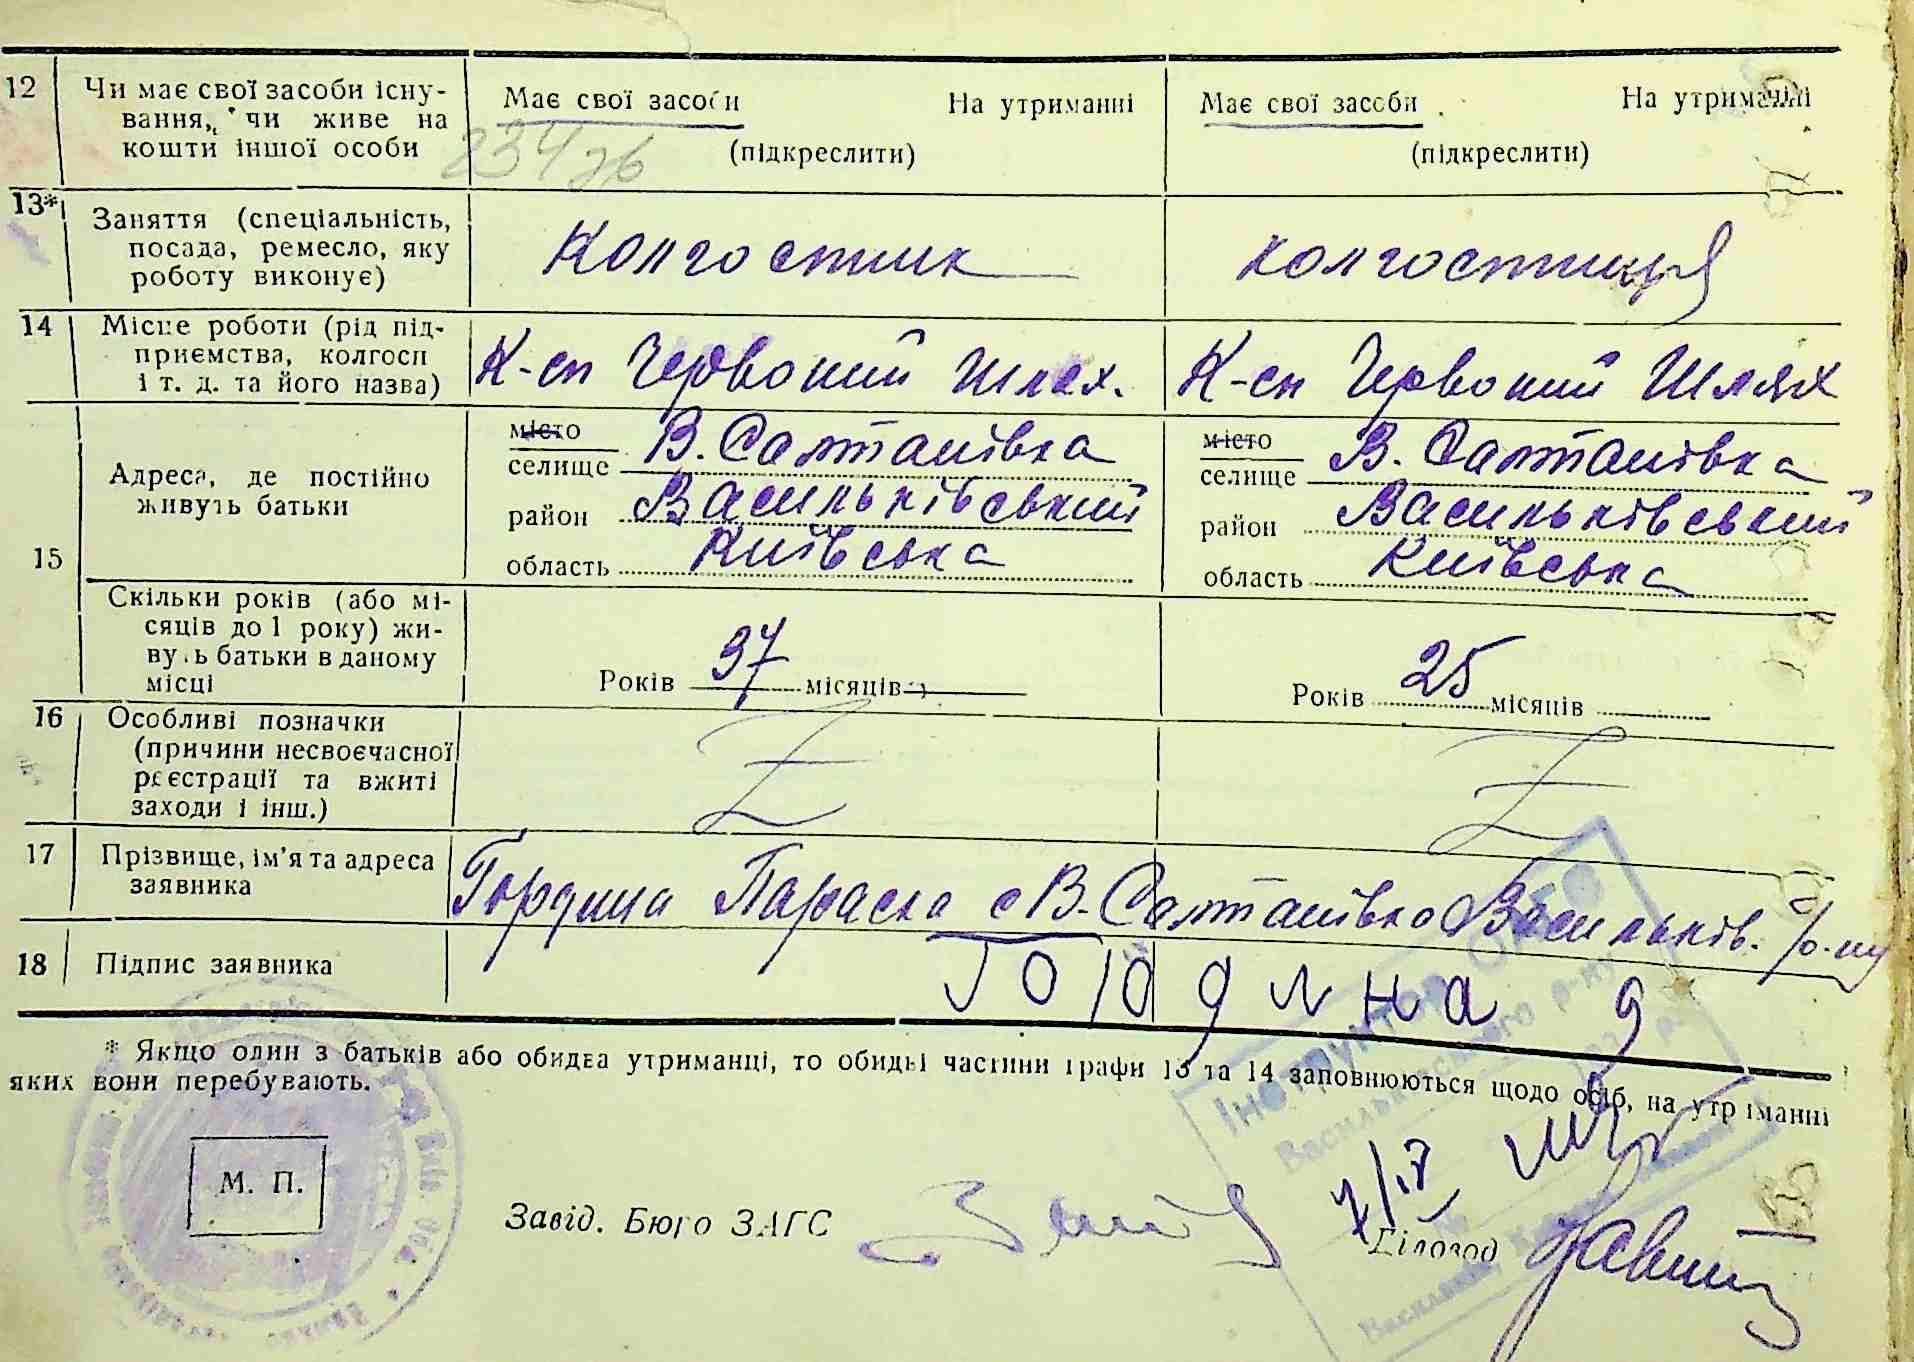 12 Чи має свої засоби існу-
вання, чи живе на
кошти іншої особи
Має свої засоби На утриманні
(підкреслити)
Має свої засоби На утриманні
(підкреслити)
234
13* Заняття (спеціальність,
посада, ремесло, яку
роботу виконує)
Колгостник
колгостниця
14 Місце роботи (рід під-
приємства, колгосп
і т. д. та його назва)
К-сп Червоний Шлях.
К-сп Червоний Шлях
15 Адреса, де постійно
живуть батьки
місто
селище В. Салтанівка
район Васильківський
область Київська
місто
селище В. Салтанівка
район Васильківський
область Київська
Скільки років (або мі-
сяців до 1 року) жи-
вуть батьки в даному
місці
Років 37 місяців
Років 25 місяців
16 Особливі позначки
(причини несвоєчасної
реєстрації та вжиті
заходи і інш.)
17 Прізвище, ім'я та адреса
заявника
Гордина Параска с В-Салтанівка Васильків. р-ну
18 Підпис заявника
* Якщо один з батьків або обидва утриманці, то обидві частини графи 13 та 14 заповнюються щодо осіб, на утриманні
яких вони перебувають.
М. П.
Завід. Бюро ЗАГС
Діловод
Інструктор
Васильківського р-ну
7/IV